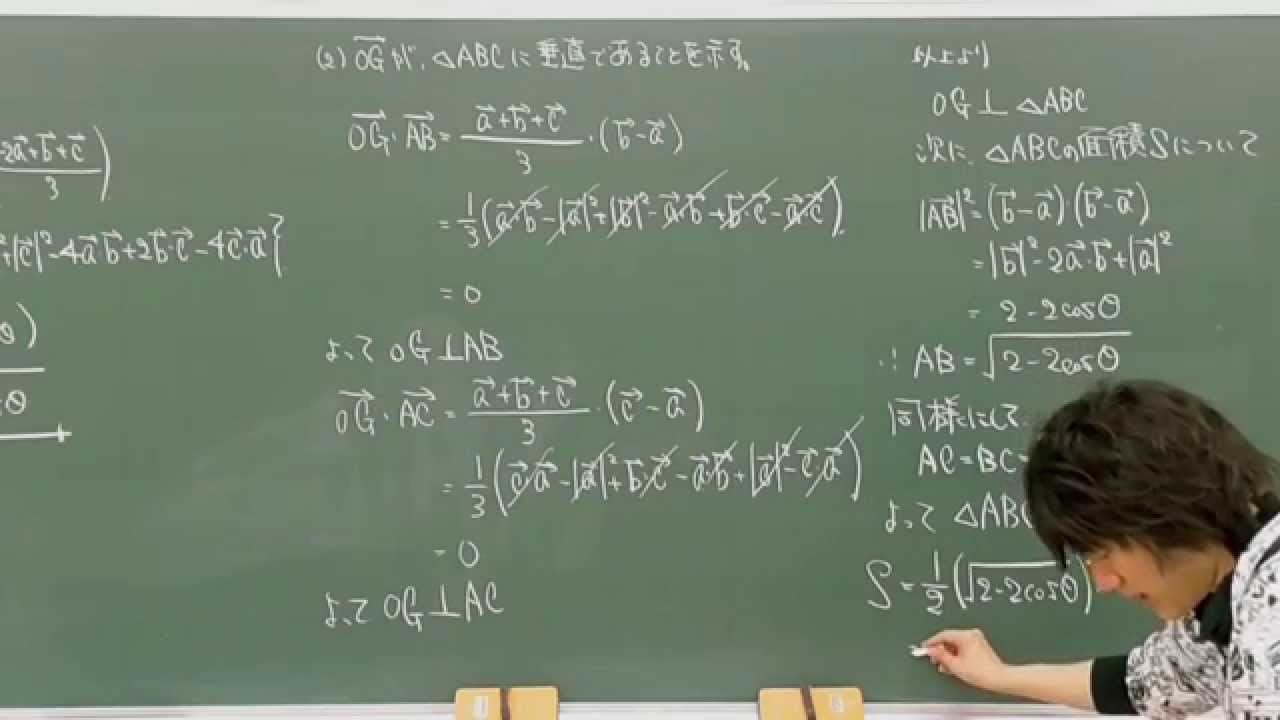 -2a⃗+b⃗+c⃗
3
+|c⃗|²-4a⃗·b⃗+2b⃗·c⃗-4c⃗·a⃗}
θ)
θ
(2) OG⃗が、△ABCに垂直であることを示す。
OG⃗・AB⃗=(a⃗+b⃗+c⃗)/3・(b⃗-a⃗)
=1/3(a⃗·b⃗-|a⃗|²+|b⃗|²-a⃗·b⃗+b⃗·c⃗-a⃗·c⃗)
=0
よって OG⊥AB
OG⃗・AC⃗=(a⃗+b⃗+c⃗)/3・(c⃗-a⃗)
=1/3(c⃗·a⃗-|a⃗|²+b⃗·c⃗-a⃗·b⃗+|a⃗|²-c⃗·a⃗)
=0
よって OG⊥AC
以上より
OG⊥△ABC
次に、△ABCの面積Sについて
|AB⃗|²=(b⃗-a⃗)·(b⃗-a⃗)
=|b⃗|²-2a⃗·b⃗+|a⃗|²
=2-2cosθ
∴AB=√(2-2cosθ)
同様にして
AC=BC=
よって △ABC
S=1/2(√(2-2cosθ))